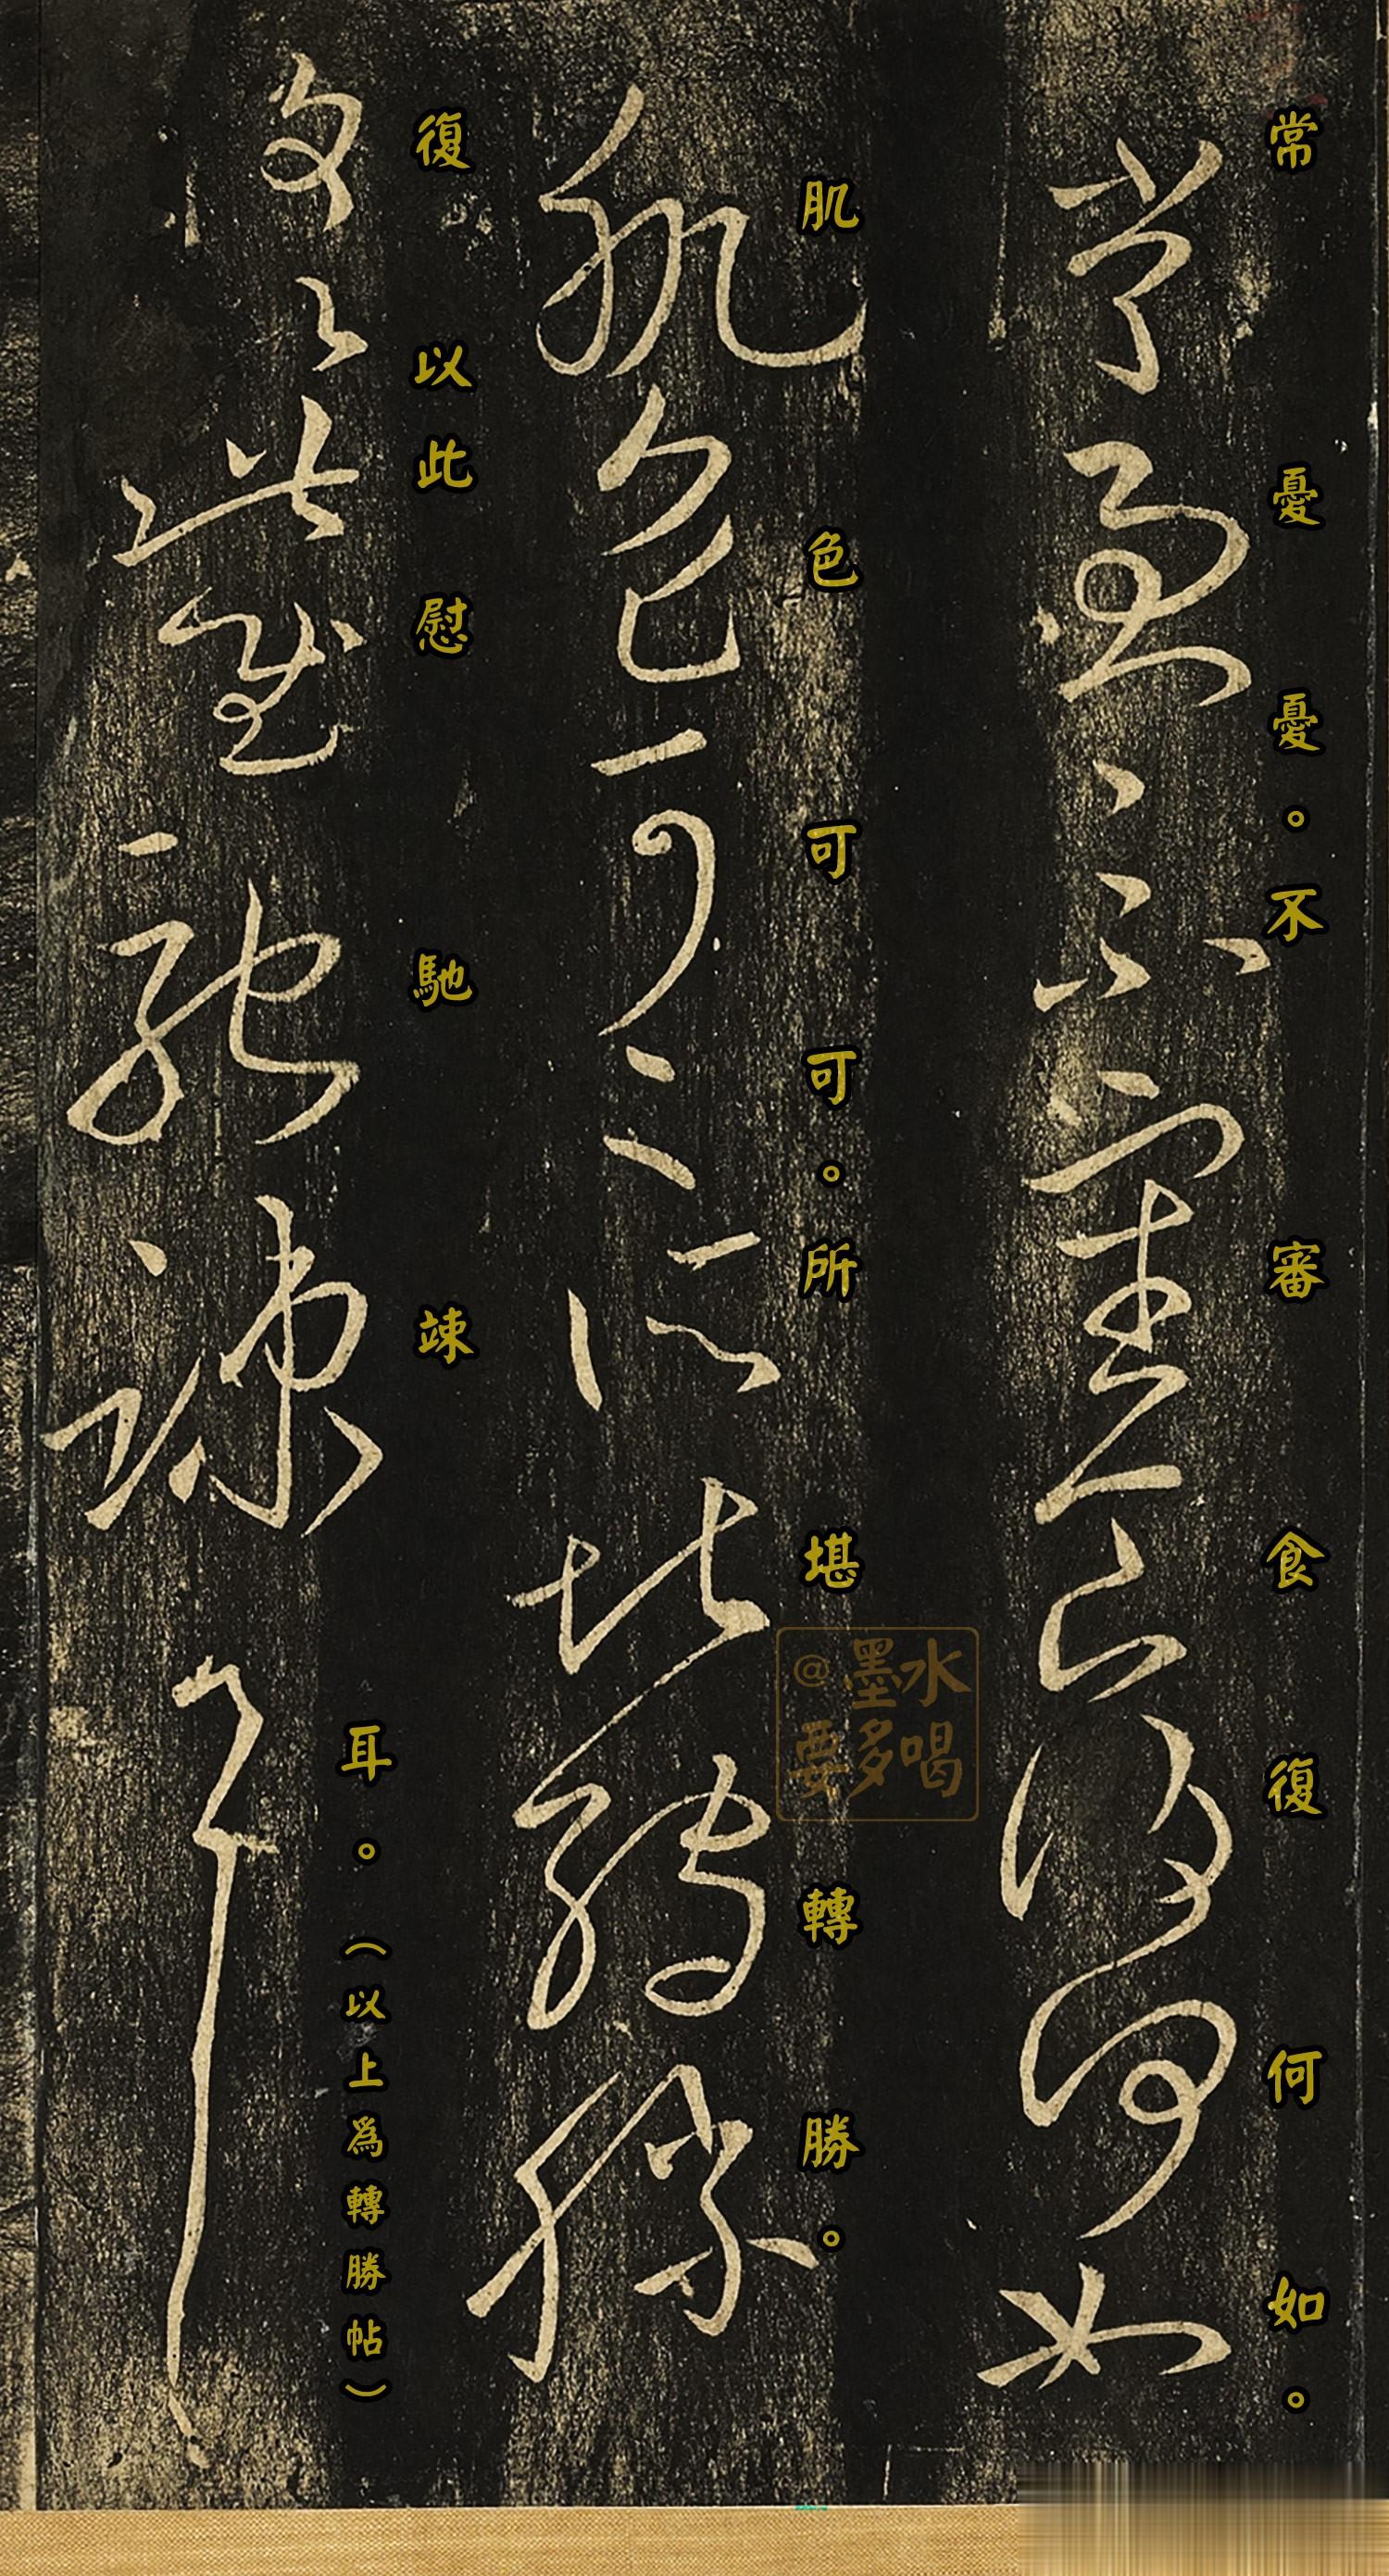 常憂憂。不審食復何如。
肌色可可。所堪轉勝。
復以此慰馳竦
耳。（以上為轉勝帖）
@墨水
要多喝